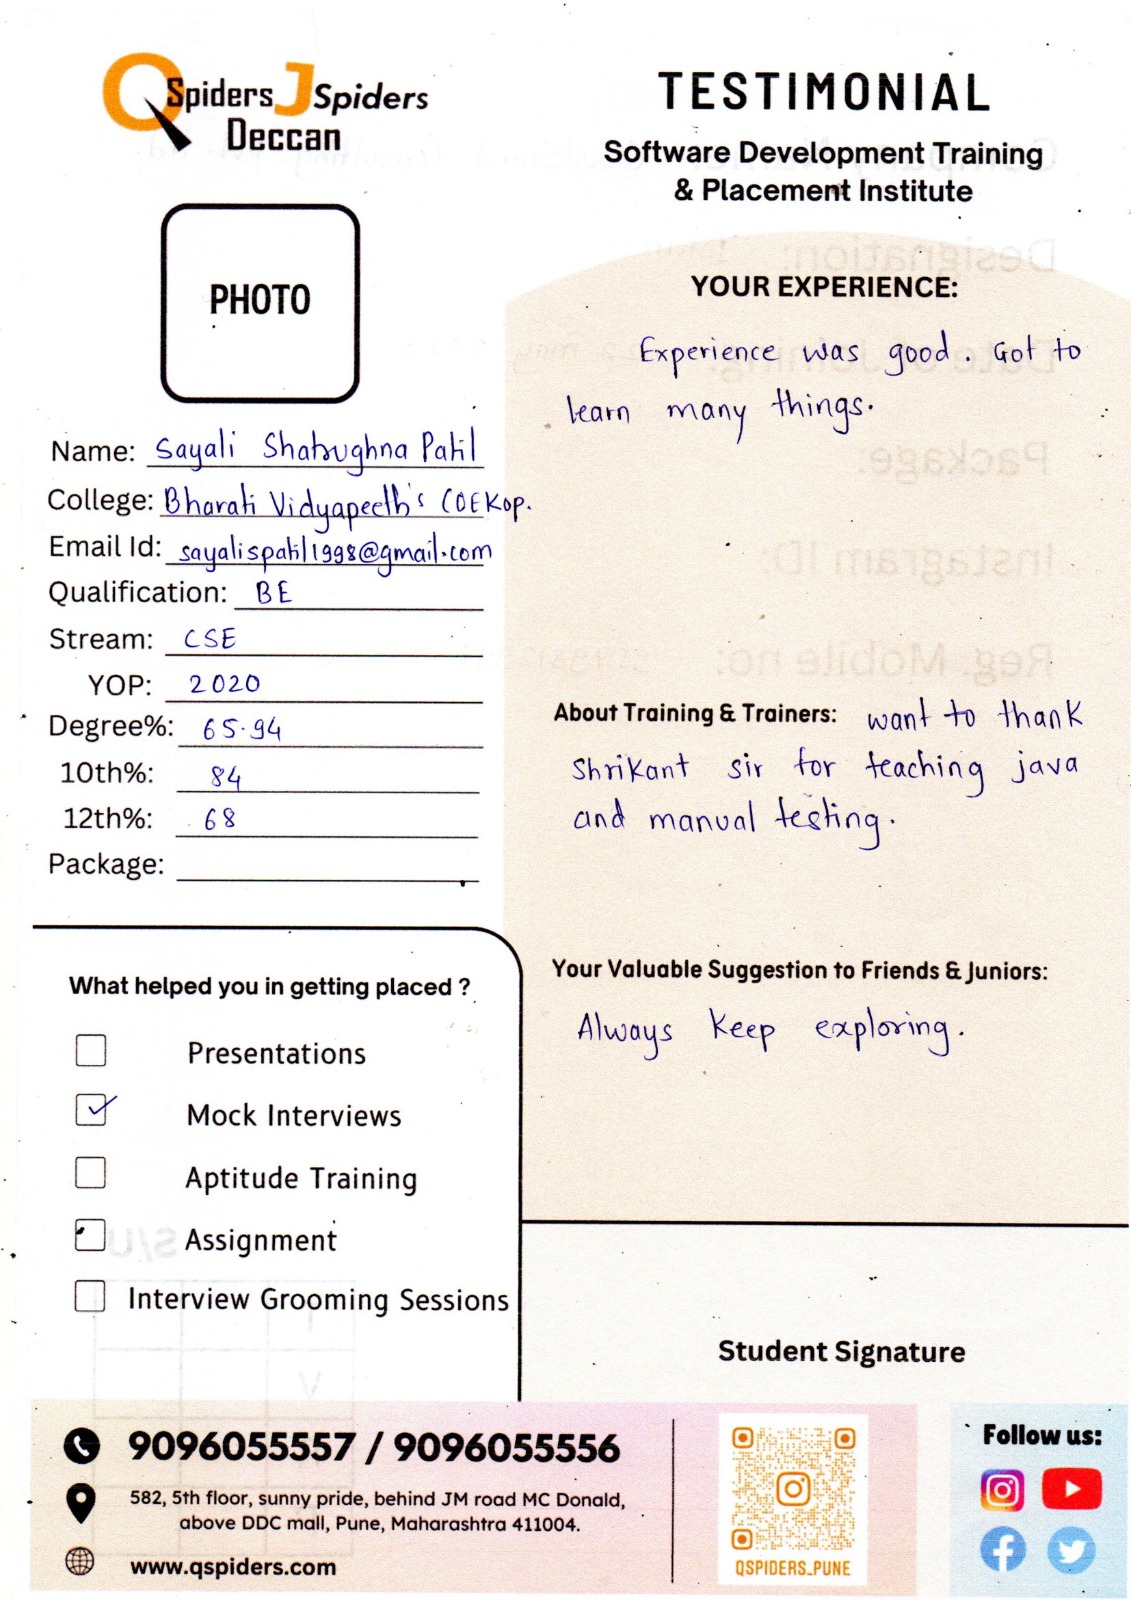 QSpiders JSpiders
Deccan
TESTIMONIAL
Software Development Training
& Placement Institute
PHOTO
Name: Sayali Shatrughna Patil
College: Bharati Vidyapeeth's COEKop.
Email Id: sayalispatil1998@gmail.com
Qualification: BE
Stream: CSE
YOP: 2020
Degree%: 65.94
10th%: 84
12th%: 68
Package:
What helped you in getting placed ?
Presentations
Mock Interviews
Aptitude Training
Assignment
Interview Grooming Sessions
YOUR EXPERIENCE:
Experience was good. Got to
learn many things.
About Training & Trainers: want to thank
Shrikant sir for teaching java
and manual testing.
Your Valuable Suggestion to Friends & Juniors:
Always Keep exploring.
Student Signature
9096055557 / 9096055556
582, 5th floor, sunny pride, behind JM road MC Donald,
above DDC mall, Pune, Maharashtra 411004.
www.qspiders.com
QSPIDERS_PUNE
Follow us: